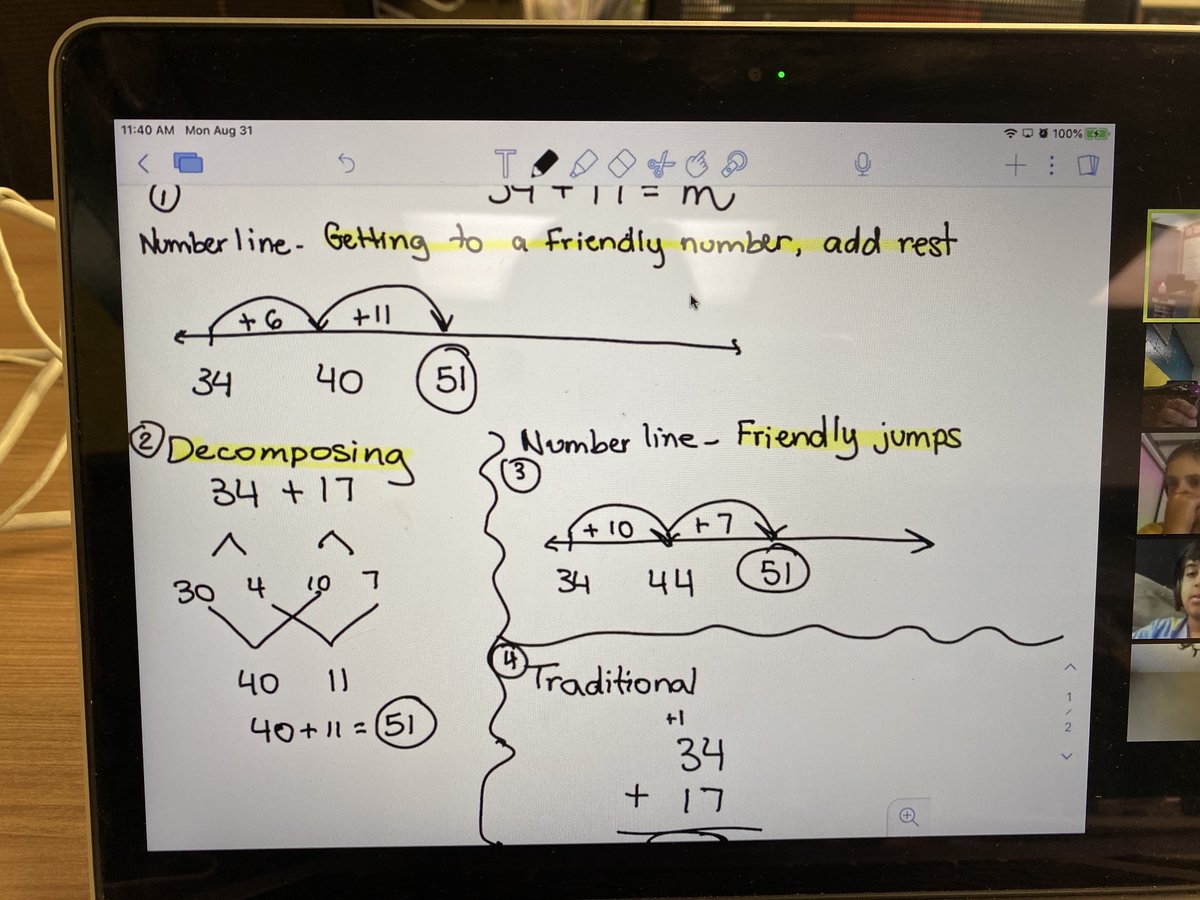 11:40 AM Mon Aug 31
100%
T
1
Number line - Getting to a friendly number, add rest
+6 +11
34 40 51
2 Decomposing
34 + 17
30 4 10 7
40 11
40 + 11 = 51
3 Number line - Friendly jumps
+10 +7
34 44 51
4 Traditional
+1
34
+ 17
1
2